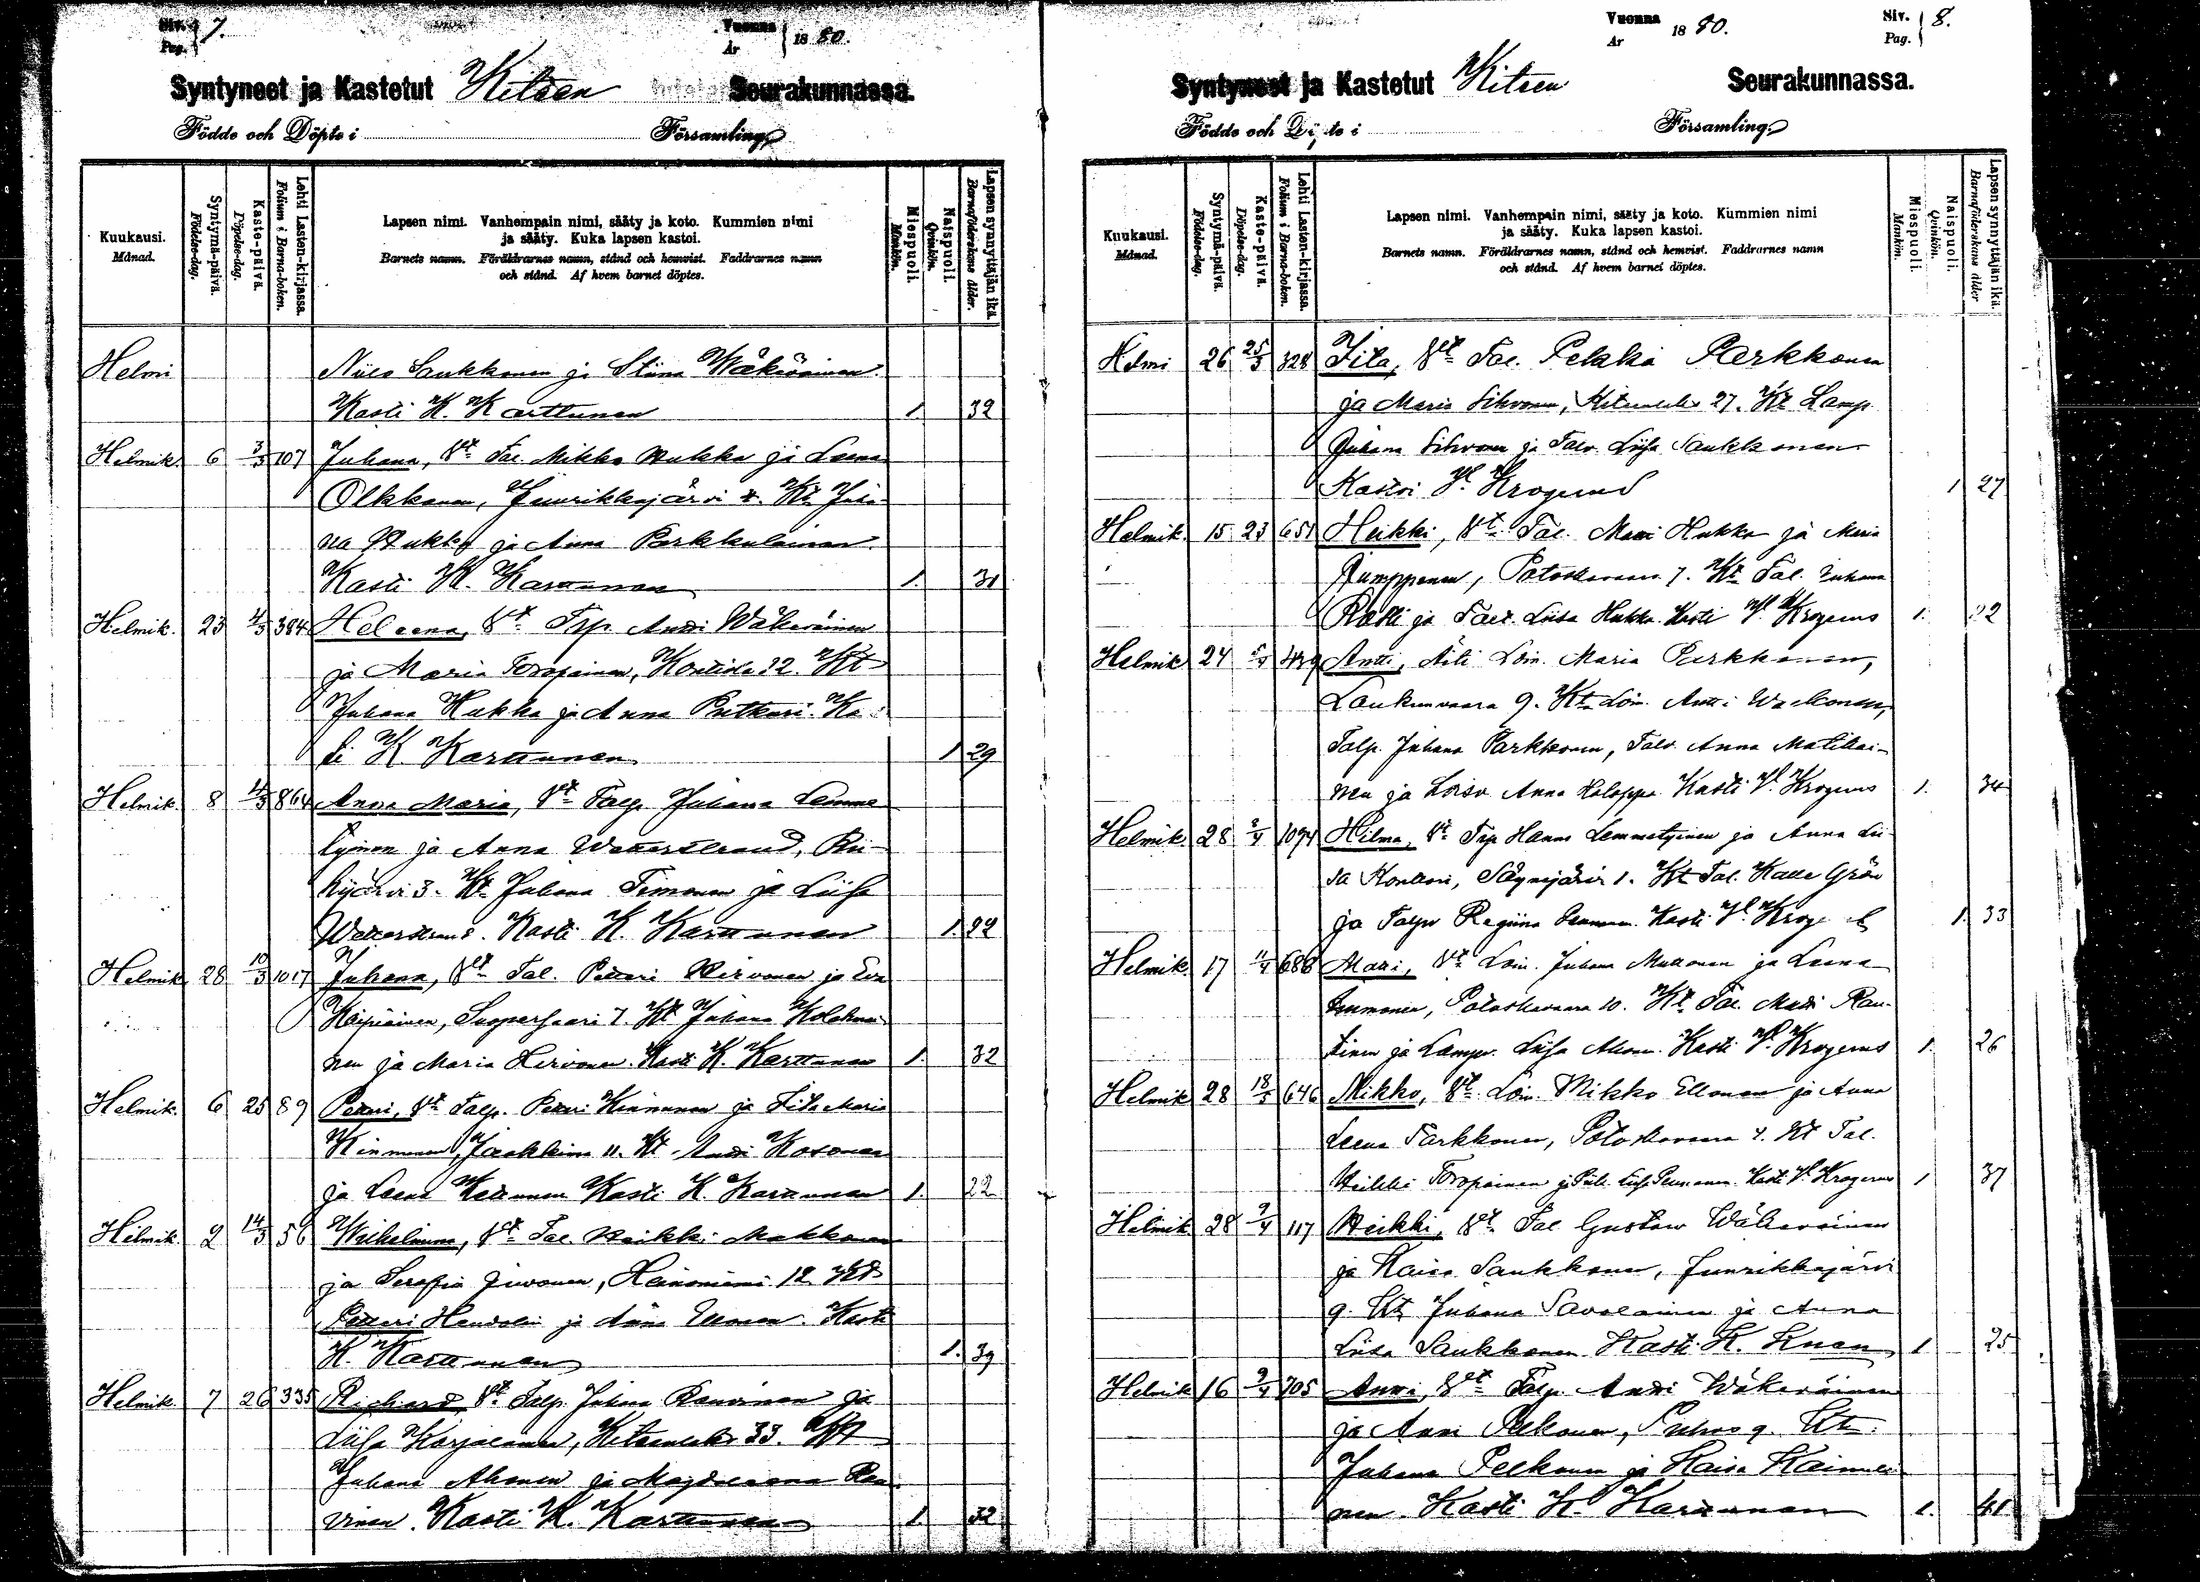 Siv. 7.
Pag.
Vuonna 1880.
År
Syntyneet ja Kastetut Kiteen Seurakunnassa.
Födde och Döpte i Församling.
Kuukausi.
Månad.
Syntymä-päivä.
Födelse-dag.
Kaste-päivä.
Döpelse-dag.
Lehti Lasten-kirjassa.
Folium i Barna-boken.
Lapsen nimi. Vanhempain nimi, sääty ja koto. Kummien nimi
ja sääty. Kuka lapsen kastoi.
Barnets namn. Föräldrarnes namn, stånd och hemvist. Faddrarnes namn
och stånd. Af hvem barnet döptes.
Miespuoli.
Mankön.
Naispuoli.
Qvinkön.
Lapsen synnyttäjän ikä.
Barnaföderskans ålder.
Helmi Niilo Saukkonen ja Stiina Wäkeväinen.
Kasti K. Karttunen 1. 32
Helmik. 6 3/3 107 Juhana, Vt Tal. Mikko Hukka ja Leena
Olkkonen, Juurikkajärvi Kt Juha
na Hukka ja Anna Parkkulainen.
Kasti K. Karttunen 1. 31
Helmik. 23 4/3 384 Heleena, Vt Talp. Antti Wäkeväinen
ja Maria Toropainen, Kontiola 22. Kt
Juhana Hukka ja Anna Putkuri. Kas
ti K. Karttunen 1 29
Helmik. 8 4/3 864 Anna Maria, Vt Talp. Juhana Lemme
tyinen ja Anna Wetterstrand, Rii
hijärvi 3. Kt Juhana Timonen ja Liisa
Wetterstrand. Kasti K. Karttunen 1. 22
Helmik. 28 10/3 1017 Juhana, Vt Tal. Petteri Hirvonen ja Eva
Kaipiainen, Suopersaari 7. Kt Juhana Kolehmai
nen ja Maria Hirvonen. Kasti K. Karttunen 1. 32
Helmik. 6 25 89 Petteri, Vt Talp. Petteri Kinnunen ja Fiita Maria
Kinnunen, Jaakkima 11. Kt Antti Kosonen
ja Leena Kettunen Kasti K. Karttunen 1. 22
Helmik. 2 14/3 56 Wilhelmina, Vt Tal. Heikki Makkonen
ja Serafia Juvonen, Heinoniemi 12 Kt
Petteri Handolin ja Anna Ellonen. Kasti
K. Karttunen 1. 39
Helmik. 7 26 335 Richard, Vt Talp. Juhana Rauvinen ja
Liisa Karjalainen, Kiteenlahti 33. Kt
Juhana Ahonen ja Magdaleena Rau
vinen. Kasti K. Karttunen 1 32
Vuonna 1880.
År
Siv. 8.
Pag.
Syntyneet ja Kastetut Kiteen Seurakunnassa.
Födde och Döpte i Församling.
Kuukausi.
Månad.
Syntymä-päivä.
Födelse-dag.
Kaste-päivä.
Döpelse-dag.
Lehti Lasten-kirjassa.
Folium i Barna-boken.
Lapsen nimi. Vanhempain nimi, sääty ja koto. Kummien nimi
ja sääty. Kuka lapsen kastoi.
Barnets namn. Föräldrarnes namn, stånd och hemvist. Faddrarnes namn
och stånd. Af hvem barnet döptes.
Miespuoli.
Mankön.
Naispuoli.
Qvinkön.
Lapsen synnyttäjän ikä.
Barnaföderskans ålder
Helmi 26 25/3 328 Fiita, Vt Tal. Pekka Parkkonen
ja Maria Sihvonen, Kiteenlahti 27. Kt Lamp
Juhana Sihvonen ja Talv. Liisa Saukkonen
Kastoi V. Krogerus 1 27
Helmik. 15 23 651 Heikki, Vt Tal. Matti Hukka ja Maria
Rumppanen, Potoskavaara 7. Kt Tal. Juhana
Rasti ja Talt. Liisa Hukka. Kasti V. Krogerus 1. 22
Helmik 24 5/4 439 Antti, Äiti Loin. Maria Parkkonen,
Loukunvaara 9. Kt Loin. Antti Waltonen,
Talp. Juhana Parkkonen, Talv. Anna Matikai-
nen ja Loisv. Anna Holoppa. Kasti V. Krogerus 1. 34
Helmik. 28 2/4 1094 Hilma, Vt Talp Hannu Lemmetyinen ja Anna Lii-
sa Kontturi, Säynejärvi 1. Kt Tal. Kalle Grön
ja Talpv Regiina Kasti V. Kroge 1. 33
Helmik. 17 11/4 688 Matti, Vt Loin. Juhana Muttonen ja Leena
Immonen, Potoskavaara 10. Kt Tal. Matti Rau-
tinen ja Lampv. Liisa Kasti V. Krogerus 1. 26
Helmik 28 18/3 646 Mikko, Vt Loin. Mikko Ellonen ja Anna
Leena Parkkonen, Potoskavaara 7. Kt Tal.
Heikki Toropainen ja Liisa Kasti V. Krogerus 1 37
Helmik 28 9/4 117 Heikki, Vt Tal Gustav Wäkeväinen
ja Kaisa Saukkonen, Juurikkajärvi
9. Kt Juhana Savolainen ja Anna
Liisa Saukkonen Kasti K. Knen 1 25
Helmik 16 9/4 705 Antti, Vt Talp. Antti Wäkeväinen
ja Anni Pelkonen, Puhos 9. Kt.
Juhana Pelkonen ja Kaisa Kainulai
nen. Kasti K. Karttunen 1. 41